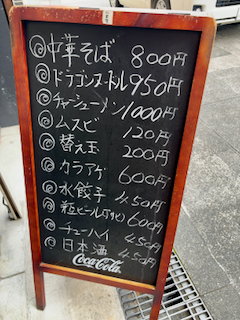 ◎中華そば 800円
◎ドラゴンヌードル 950円
◎チャーシューメン 1000円
◎ムスビ 120円
◎替え玉 200円
◎カラアゲ 600円
◎水餃子 450円
◎瓶ビール 600円
◎チューハイ 450円
◎日本酒 450円
Coca-Cola